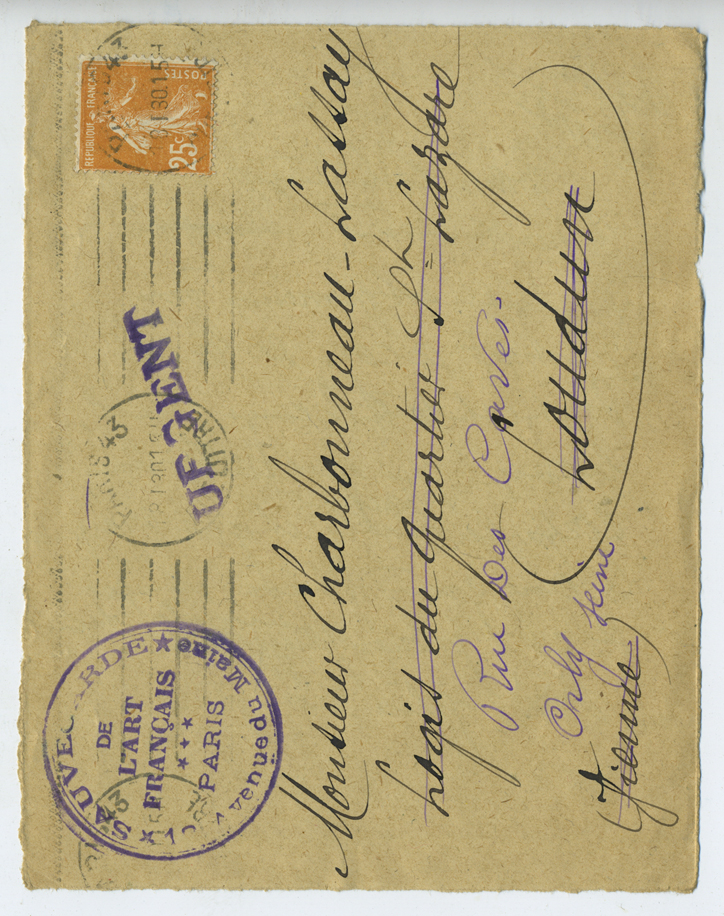 SAUVEGARDE
DE
L'ART
FRANÇAIS
PARIS
Avenue du Maine
PARIS 43
URGENT
RÉPUBLIQUE FRANÇAISE
POSTES
25c
Monsieur Charbonneau-Lassay
Logis du Quartier St = Lazare
Rue Des Caves
Loudun
Orly Seine
Vienne